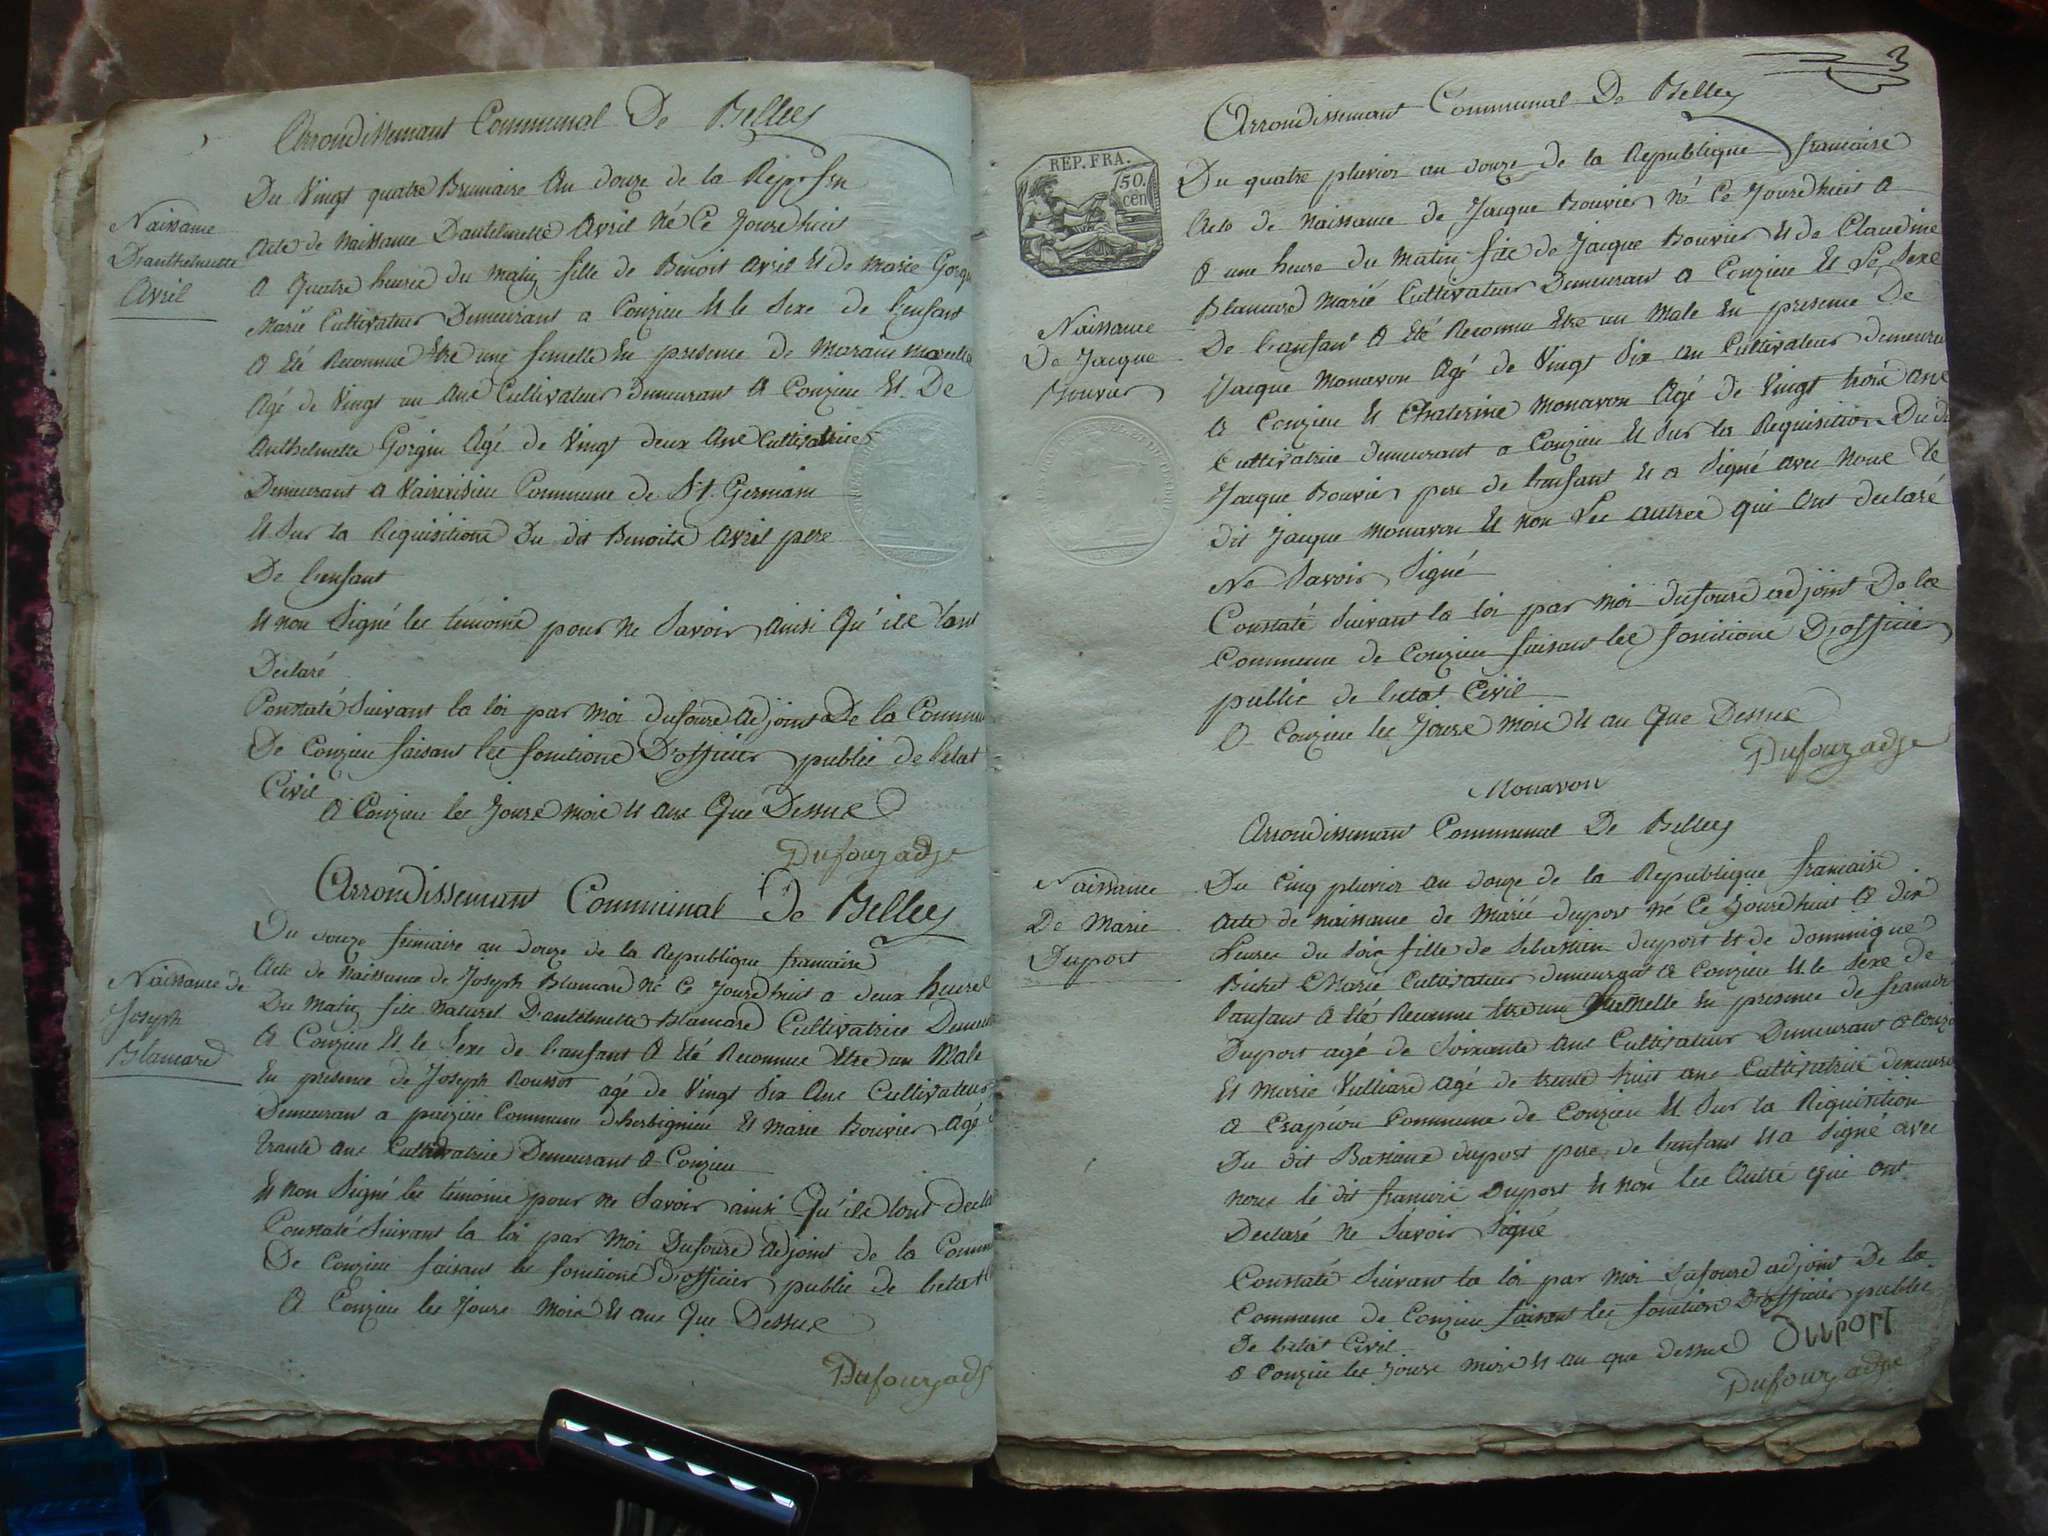 Arrondissemant Communal De Belley
Du Vingt quatre Brumaire An douze de la Rep
Naissance
Danthelmette
Avril
Acte de Naissance Dantelmette Avril Né Ce Jourdhuit
A quatre heures du Matin fille de Benoit Avril Et de Marie
Marié Cultivateur Demeurant a Conzieu Et le Sexe de Lenfant
A Eté Reconnue Etre une femelle En presence de
Agé de Vingt un ans Cultivateur Demeurant A Conzieu Et De
Anthelmette Gorgin Agé de Vingt deux Ans Cultivatrice
Demeurant A Commune de St. Germain
Et Sur la Requisitione Du dit Benoits Avril pere
De Lenfant
Et non Signé les témoins pour ne Savoir ainsi Qu'ils Lont
Declaré
Constaté Suivant la Loi par Moi dufours adjoint De la Commu
De Conzieu faisant les fonctions D'officier public de Letat
Civil
A Conzieu les Jours mois et ans Que Dessus
Dufour adj
Arrondissemant Communal De Belley
Du douze frimaire an douze de la Republique francaise
Naissance de
Joseph
Blamard
Acte de Naissance de Joseph Blamard Né Ce Jourdhuit a deux heures
Du Matin fils naturel Dantelmette Blamard Cultivatrice Demeu
A Conzieu Et le Sexe de Lanfant A Eté Reconnue Etre un Male
En presence de Joseph Roussot agé de Vingt Six Ans Cultivateur
Demeurant a Commune et Marie Bouvier Agé
trante ans Cultivatrice Demeurant A Conzieu
Et non Signé les témoins pour ne Savoir ainsi Qu'ils Lont Decla
Constaté Suivant la Loi par Moi Dufours Adjoint de la Comm
De Conzieu faisant les fonctions D'officier public de Letat
A Conzieu les Jours Mois Et ans Que Dessus
Dufour adj
3
Arrondissemant Communal De Belley
REP. FRA.
50.
cen
Du quatre pluvios an douze de la Republique francaise
Acte de Naissance de Jacque Bouvier Né Ce Jourdhuit A
A une heure du Matin fils de Jacque Bouvier Et de Claudine
Blamard Marié Cultivateur Demeurant a Conzieu Et Le Sexe
Naissance
De Jacque
Bouvier
De Lanfant A Eté Reconnu Etre un Male En presence De
Jacque Monavon Agé de Vingt Six an Cultivateur demeuran
A Conzieu Et Chaterine Monavon Agé de Vingt trois ans
Cultivatrice demeurant a Conzieu Et Sur la Requisition Du di
Jacque Bouvier pere de Lenfant Et a Signé avec Nous Le
dit Jacque Monavon Et non Les autres qui ont declaré
Ne Savoir Signé
Constaté Suivant la Loi par Moi dufours adjoint De la
Commune de Conzieu faisant les fonctions D'officier
public de Letat Civil
A Conzieu les Jours Mois Et an Que Dessus
Dufour adj
Monavon
Arrondissemant Communal De Belley
Naissance
De Marie
Duport
Du Cinq pluvios an douze de la Republique francaise
Acte de naissance de Marie duport Né Ce Jourdhuit A dix
heures du Soir fille de Sebastien duport Et de dominique
Bichet Marié Cultivateur demeurant a Conzieu Et le Sexe de
Lanfant A Eté Reconnue Etre une femelle En presence de francois
Duport agé de Soixante Ans Cultivateur Demeurant a Conzi
Et Marie Vulliard agé de trente huit ans Cultivatrice demeura
A Crapéou Commune de Conzieu Et Sur la Requisition
Du dit Bastiane duport pere de Lenfant Et a Signé avec
nous le dit francois Duport et non les Autre qui ont
Declaré Ne Savoir Signé
Constaté Suivant la Loi par Moi dufours adjoint De la
Commune de Conzieu faisant les fonctions D'officier public
De Letat Civil
A Conzieu les Jours Mois Et an que dessus Duport
Dufour adj